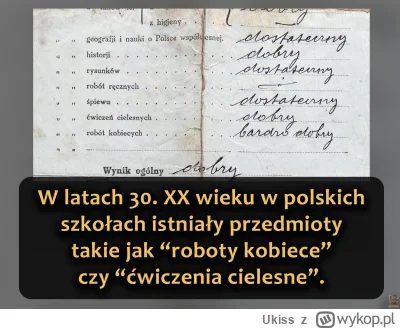 z higjeny
„ „ geografji i nauki o Polsce współczesnej. dostateczny
„ „ historji dobry
„ „ rysunków dostateczny
„ „ robót ręcznych
„ „ śpiewu dostateczny
„ „ ćwiczeń cielesnych dobry
„ „ robót kobiecych bardzo dobry
Wynik ogólny dobry
W latach 30. XX wieku w polskich
szkołach istniały przedmioty
takie jak “roboty kobiece”
czy “ćwiczenia cielesne”.
Ukiss z wykop.pl